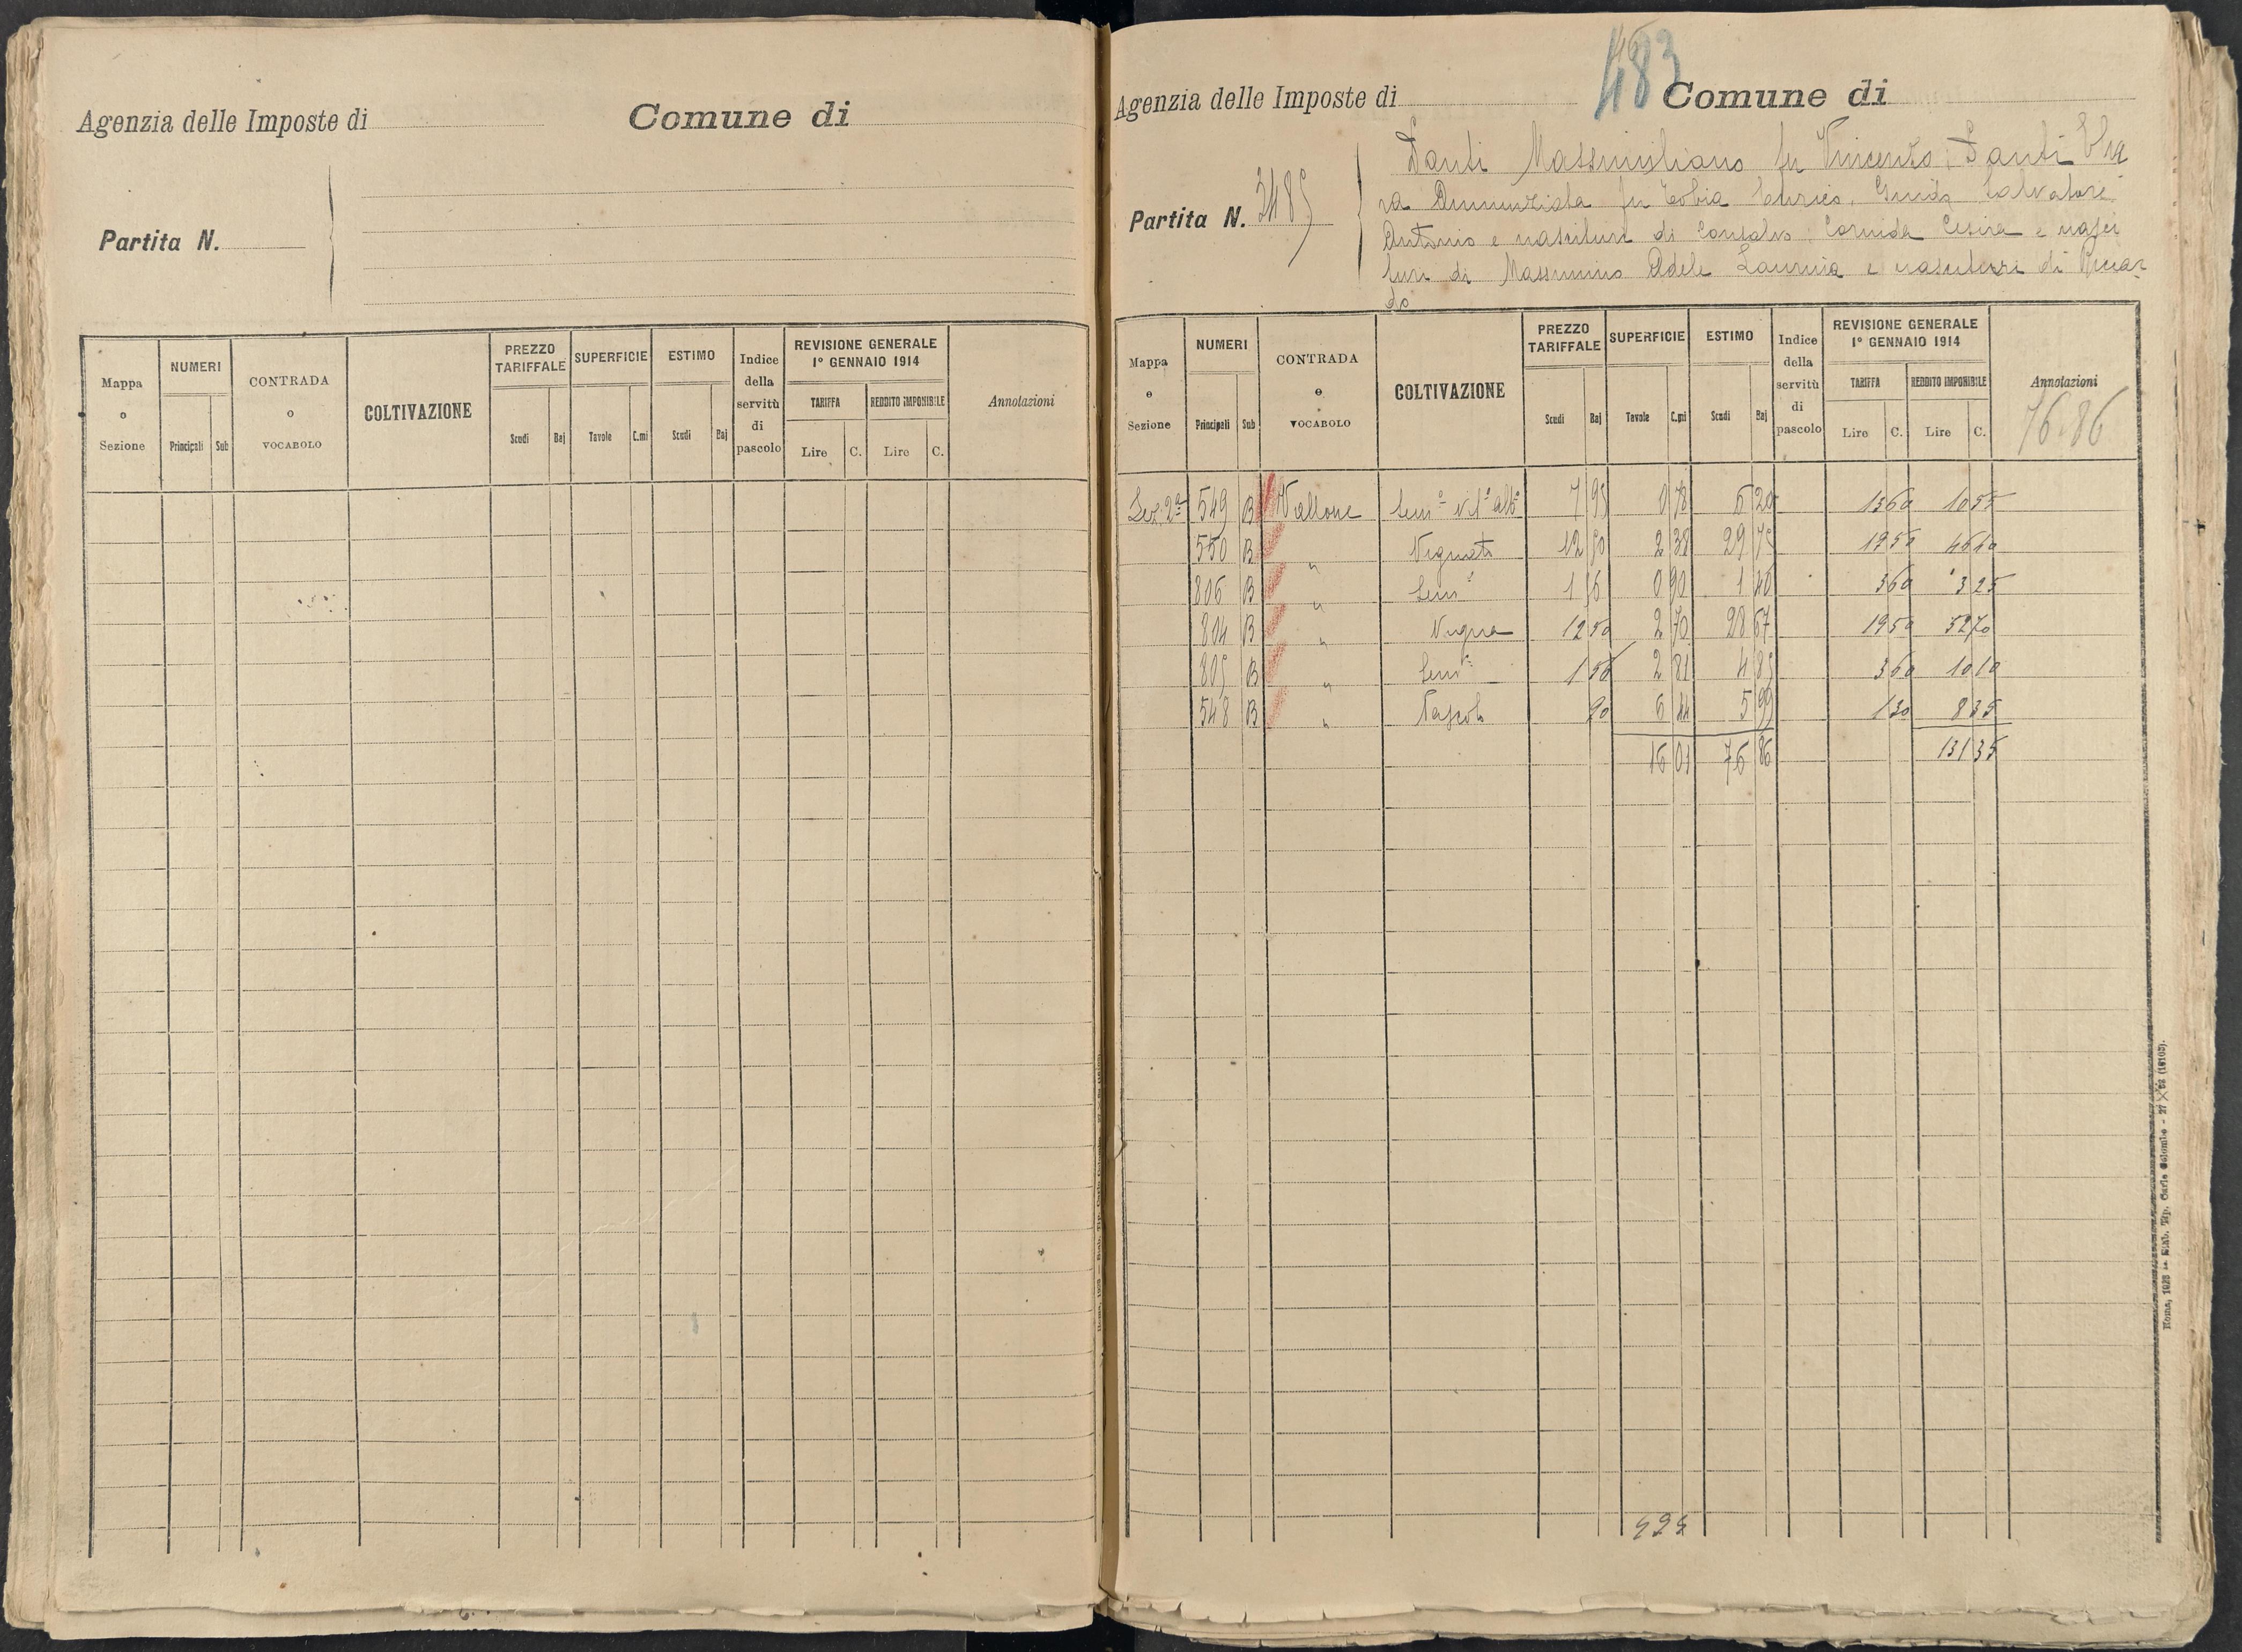 Agenzia delle Imposte di Comune di
Partita N.
Mappa o Sezione
NUMERI
Principali Sub
CONTRADA o VOCABOLO
COLTIVAZIONE
PREZZO TARIFFALE
Scudi Baj
SUPERFICIE
Tavole C.mi
ESTIMO
Scudi Baj
Indice della servitù di pascolo
REVISIONE GENERALE
1° GENNAIO 1914
TARIFFA REDDITO IMPONIBILE
Lire C. Lire C.
Annotazioni
483
Agenzia delle Imposte di Comune di
Partita N. 3485
Santi Massimiliano fu Vincenzo, Santi
ra Annunziata fu Tobia Enrico, Guido Salvatore
Antonio e nascituri di Consalvo, Cesira e nasci
turi di Massimino Adele Laurina e nascituri di Riccar
do
Mappa o Sezione
NUMERI
Principali Sub
CONTRADA o VOCABOLO
COLTIVAZIONE
PREZZO TARIFFALE
Scudi Baj
SUPERFICIE
Tavole C.mi
ESTIMO
Scudi Baj
Indice della servitù di pascolo
REVISIONE GENERALE
1° GENNAIO 1914
TARIFFA REDDITO IMPONIBILE
Lire C. Lire C.
Annotazioni
76.86
Sez. 2ª 549 B Vallone Sem° vit° alb° 7 95 0 78 6 20 13 60 10 55
550 B " Vignato 12 50 2 38 29 75 19 50 46 40
806 B " Sem° 1 56 0 90 1 40 3 60 3 25
804 B " Vigna 12 50 2 70 28 67 19 50 52 70
805 B " Sem° 1 56 2 81 4 85 3 60 10 10
548 B " Pascolo 90 6 44 5 99 1 30 8 35
16 01 76 86 131 35
525